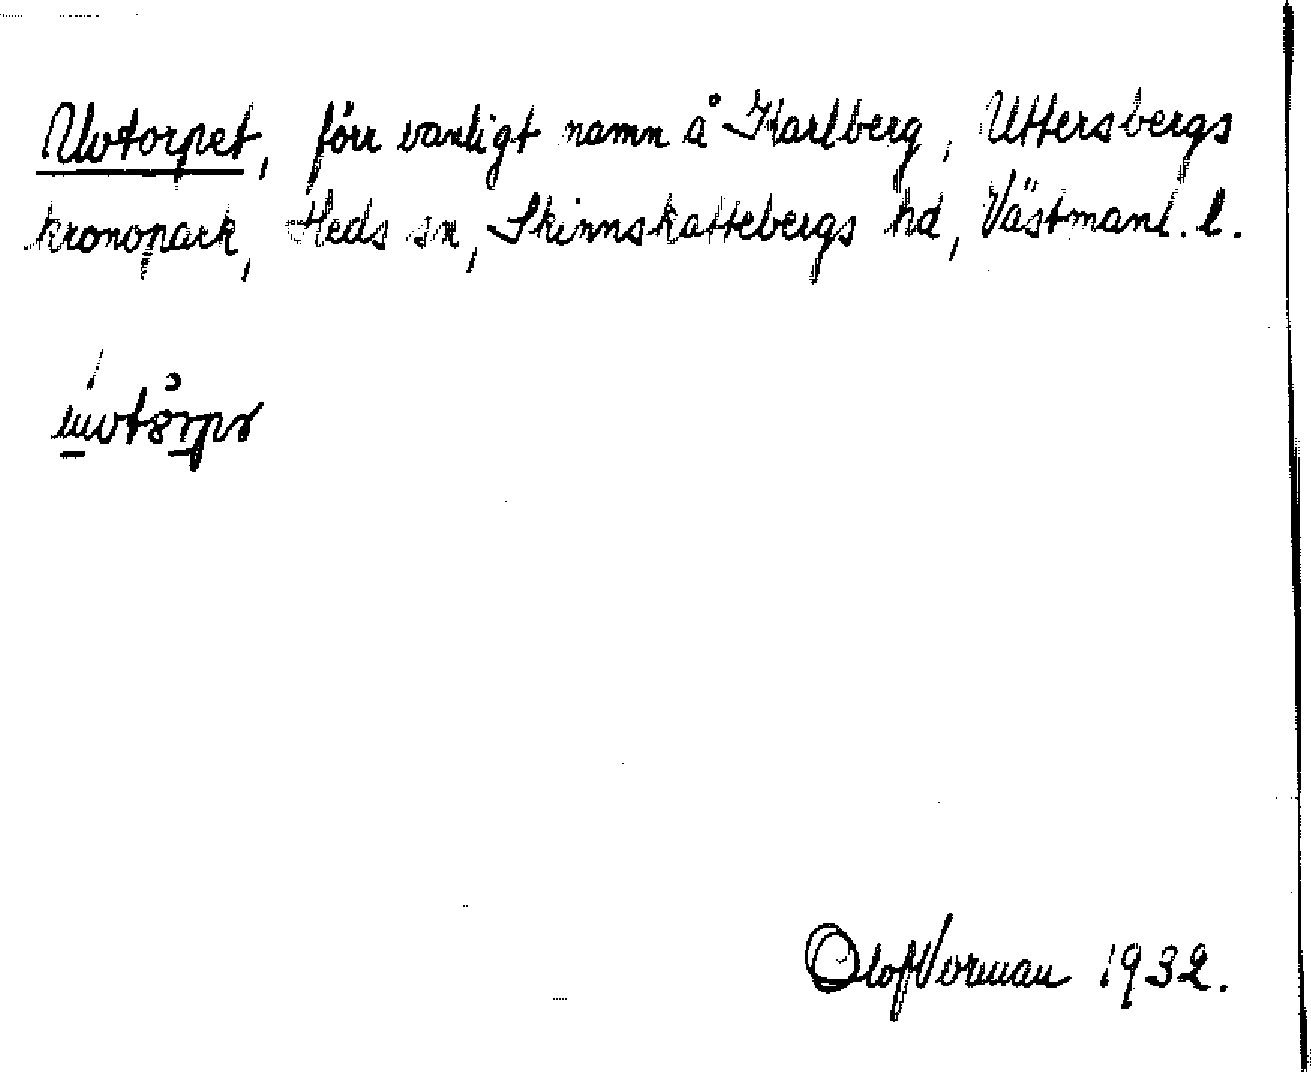 Uvtorpet, förr vanligt namn å Karlberg, Uttersbergs
kronopark, Heds sn, Skinnskattebergs hd, Västmanl. l.
Olof Vorman 1932.